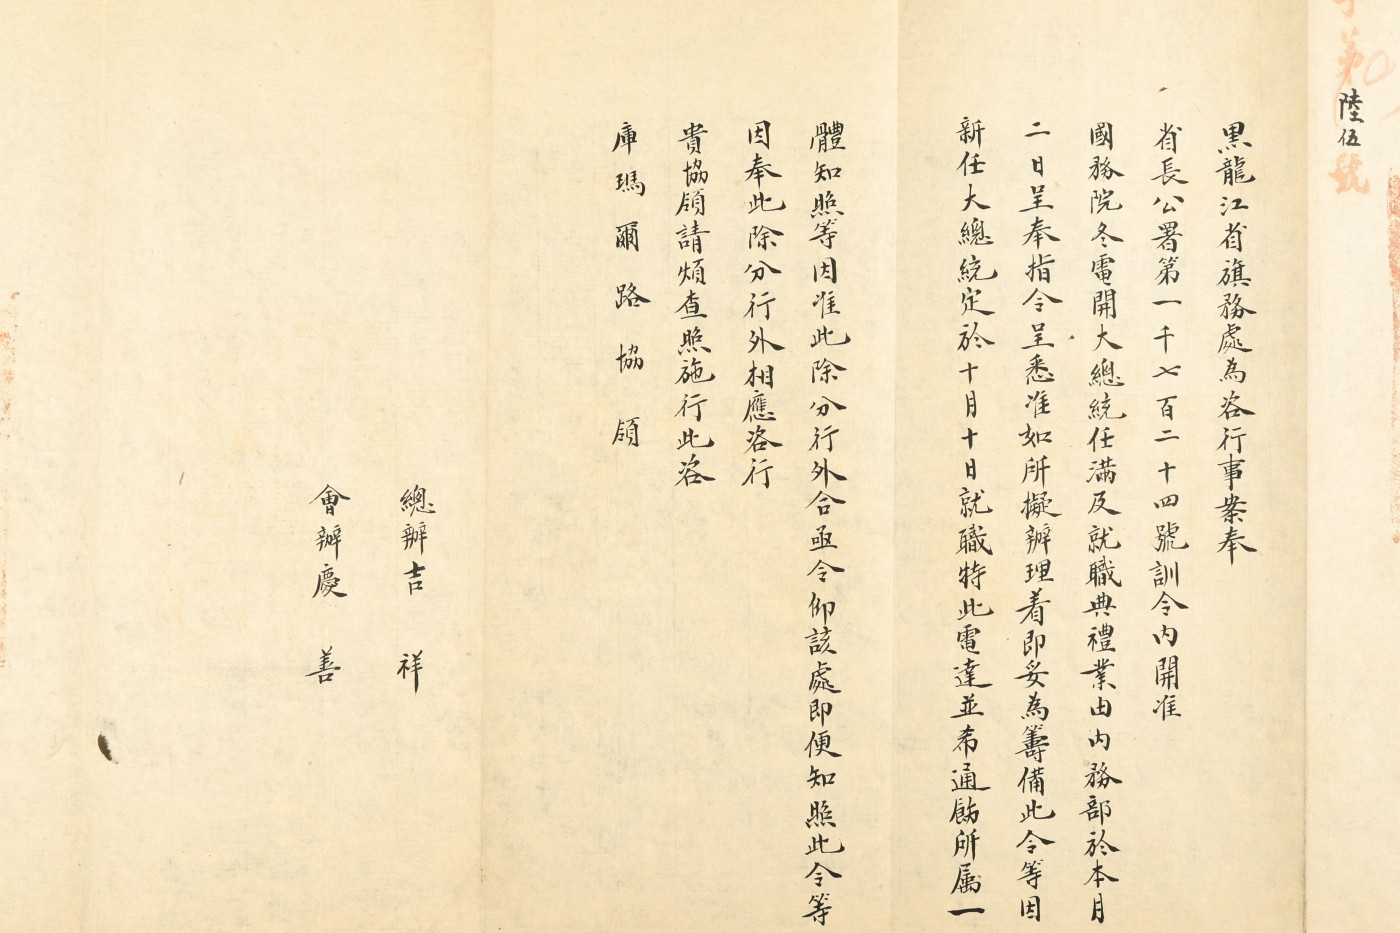 第陸伍號
黑龍江省旗務處為咨行事案奉
省長公署第一千七百二十四號訓令內開准
國務院冬電開大總統任滿及就職典禮業由內務部於本月
二日呈奉指令呈悉准如所擬辦理着即妥為籌備此令等因
新任大總統定於十月十日就職特此電達並希通飭所属一
體知照等因准此除分行外合亟令仰該處即便知照此令等
因奉此除分行外相應咨行
貴協領請煩查照施行此咨
庫瑪爾路協領
總辦吉祥
會辦慶善